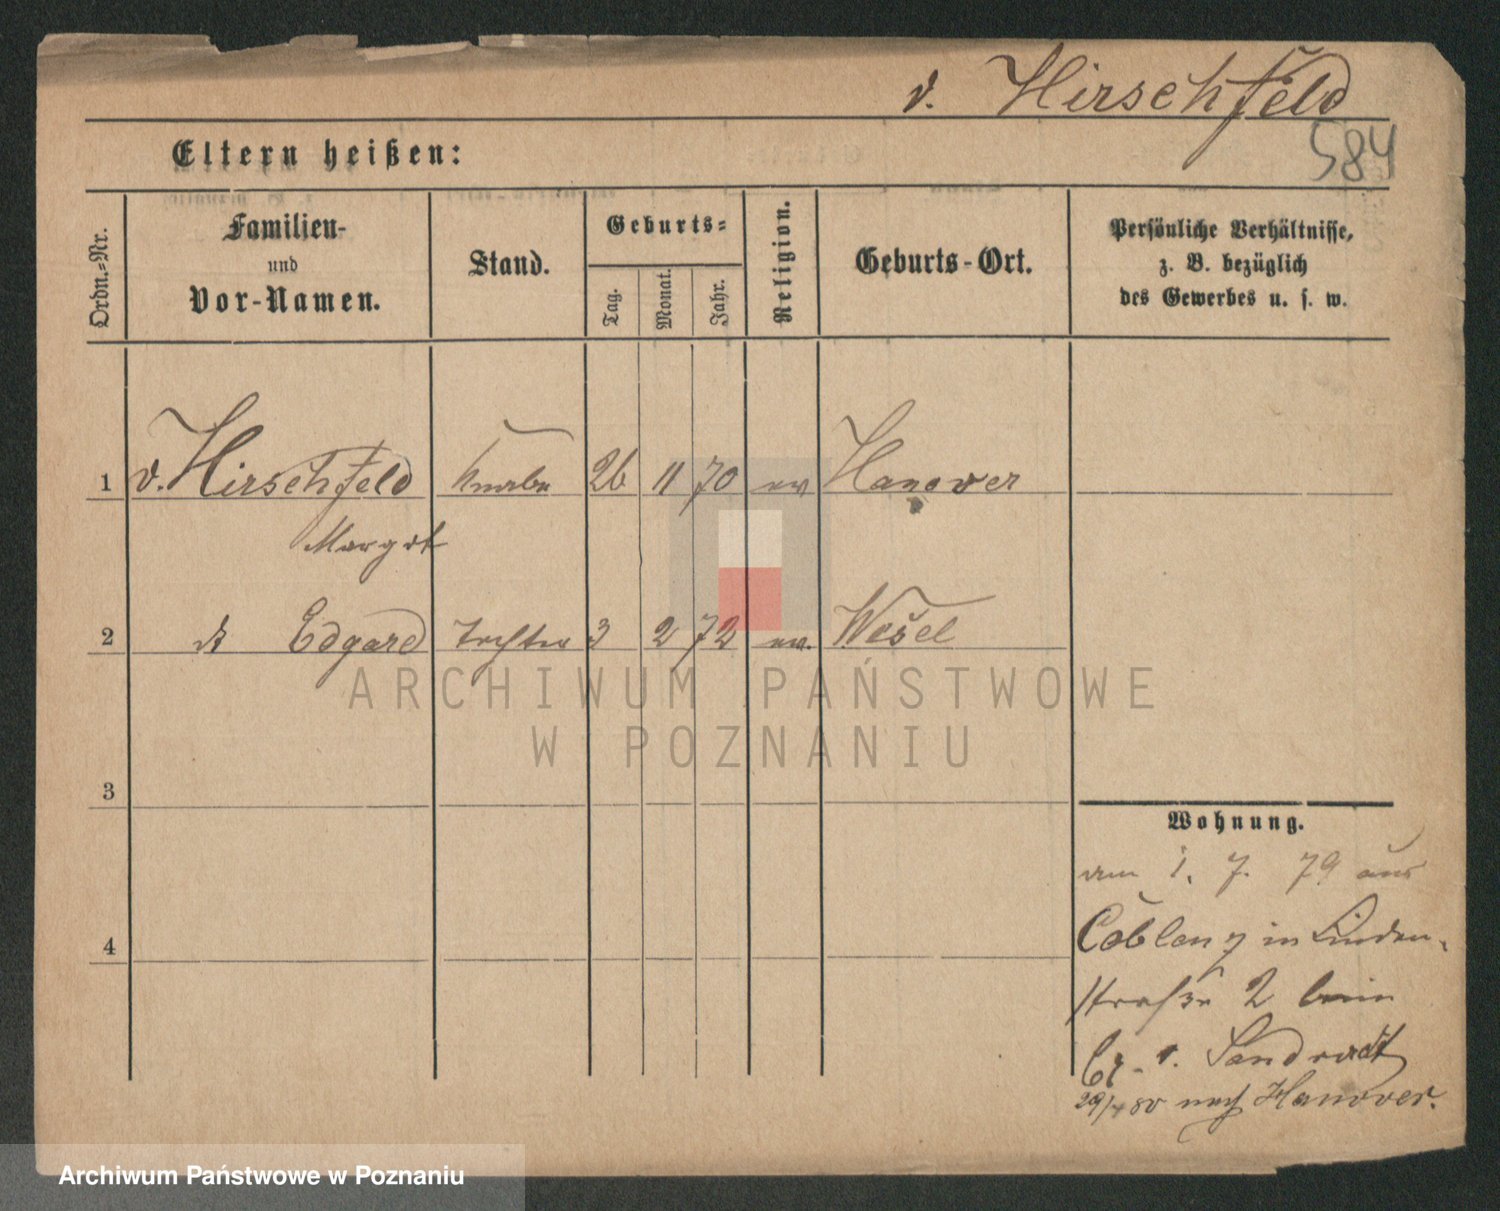 v. Hirschfeld
584
Eltern heißen:
Ordn.=Nr.
Familien-
und
Vor-Namen.
Stand.
Geburts=
Tag.
Monat.
Jahr.
Religion.
Geburts-Ort.
Persönliche Verhältnisse,
z. B. bezüglich
des Gewerbes u. s. w.
1 v. Hirschfeld Knabe 26 11 70 ev Hanover
Margot
2 Edgard Tochter 3 2 72 ev. Wesel
3
4
Wohnung.
am 1. 7. 79 aus
Coblenz in Linden-
straße 2 beim
v. Sandradt
29/4 80 nach Hanover.
ARCHIWUM PAŃSTWOWE
W POZNANIU
Archiwum Państwowe w Poznaniu